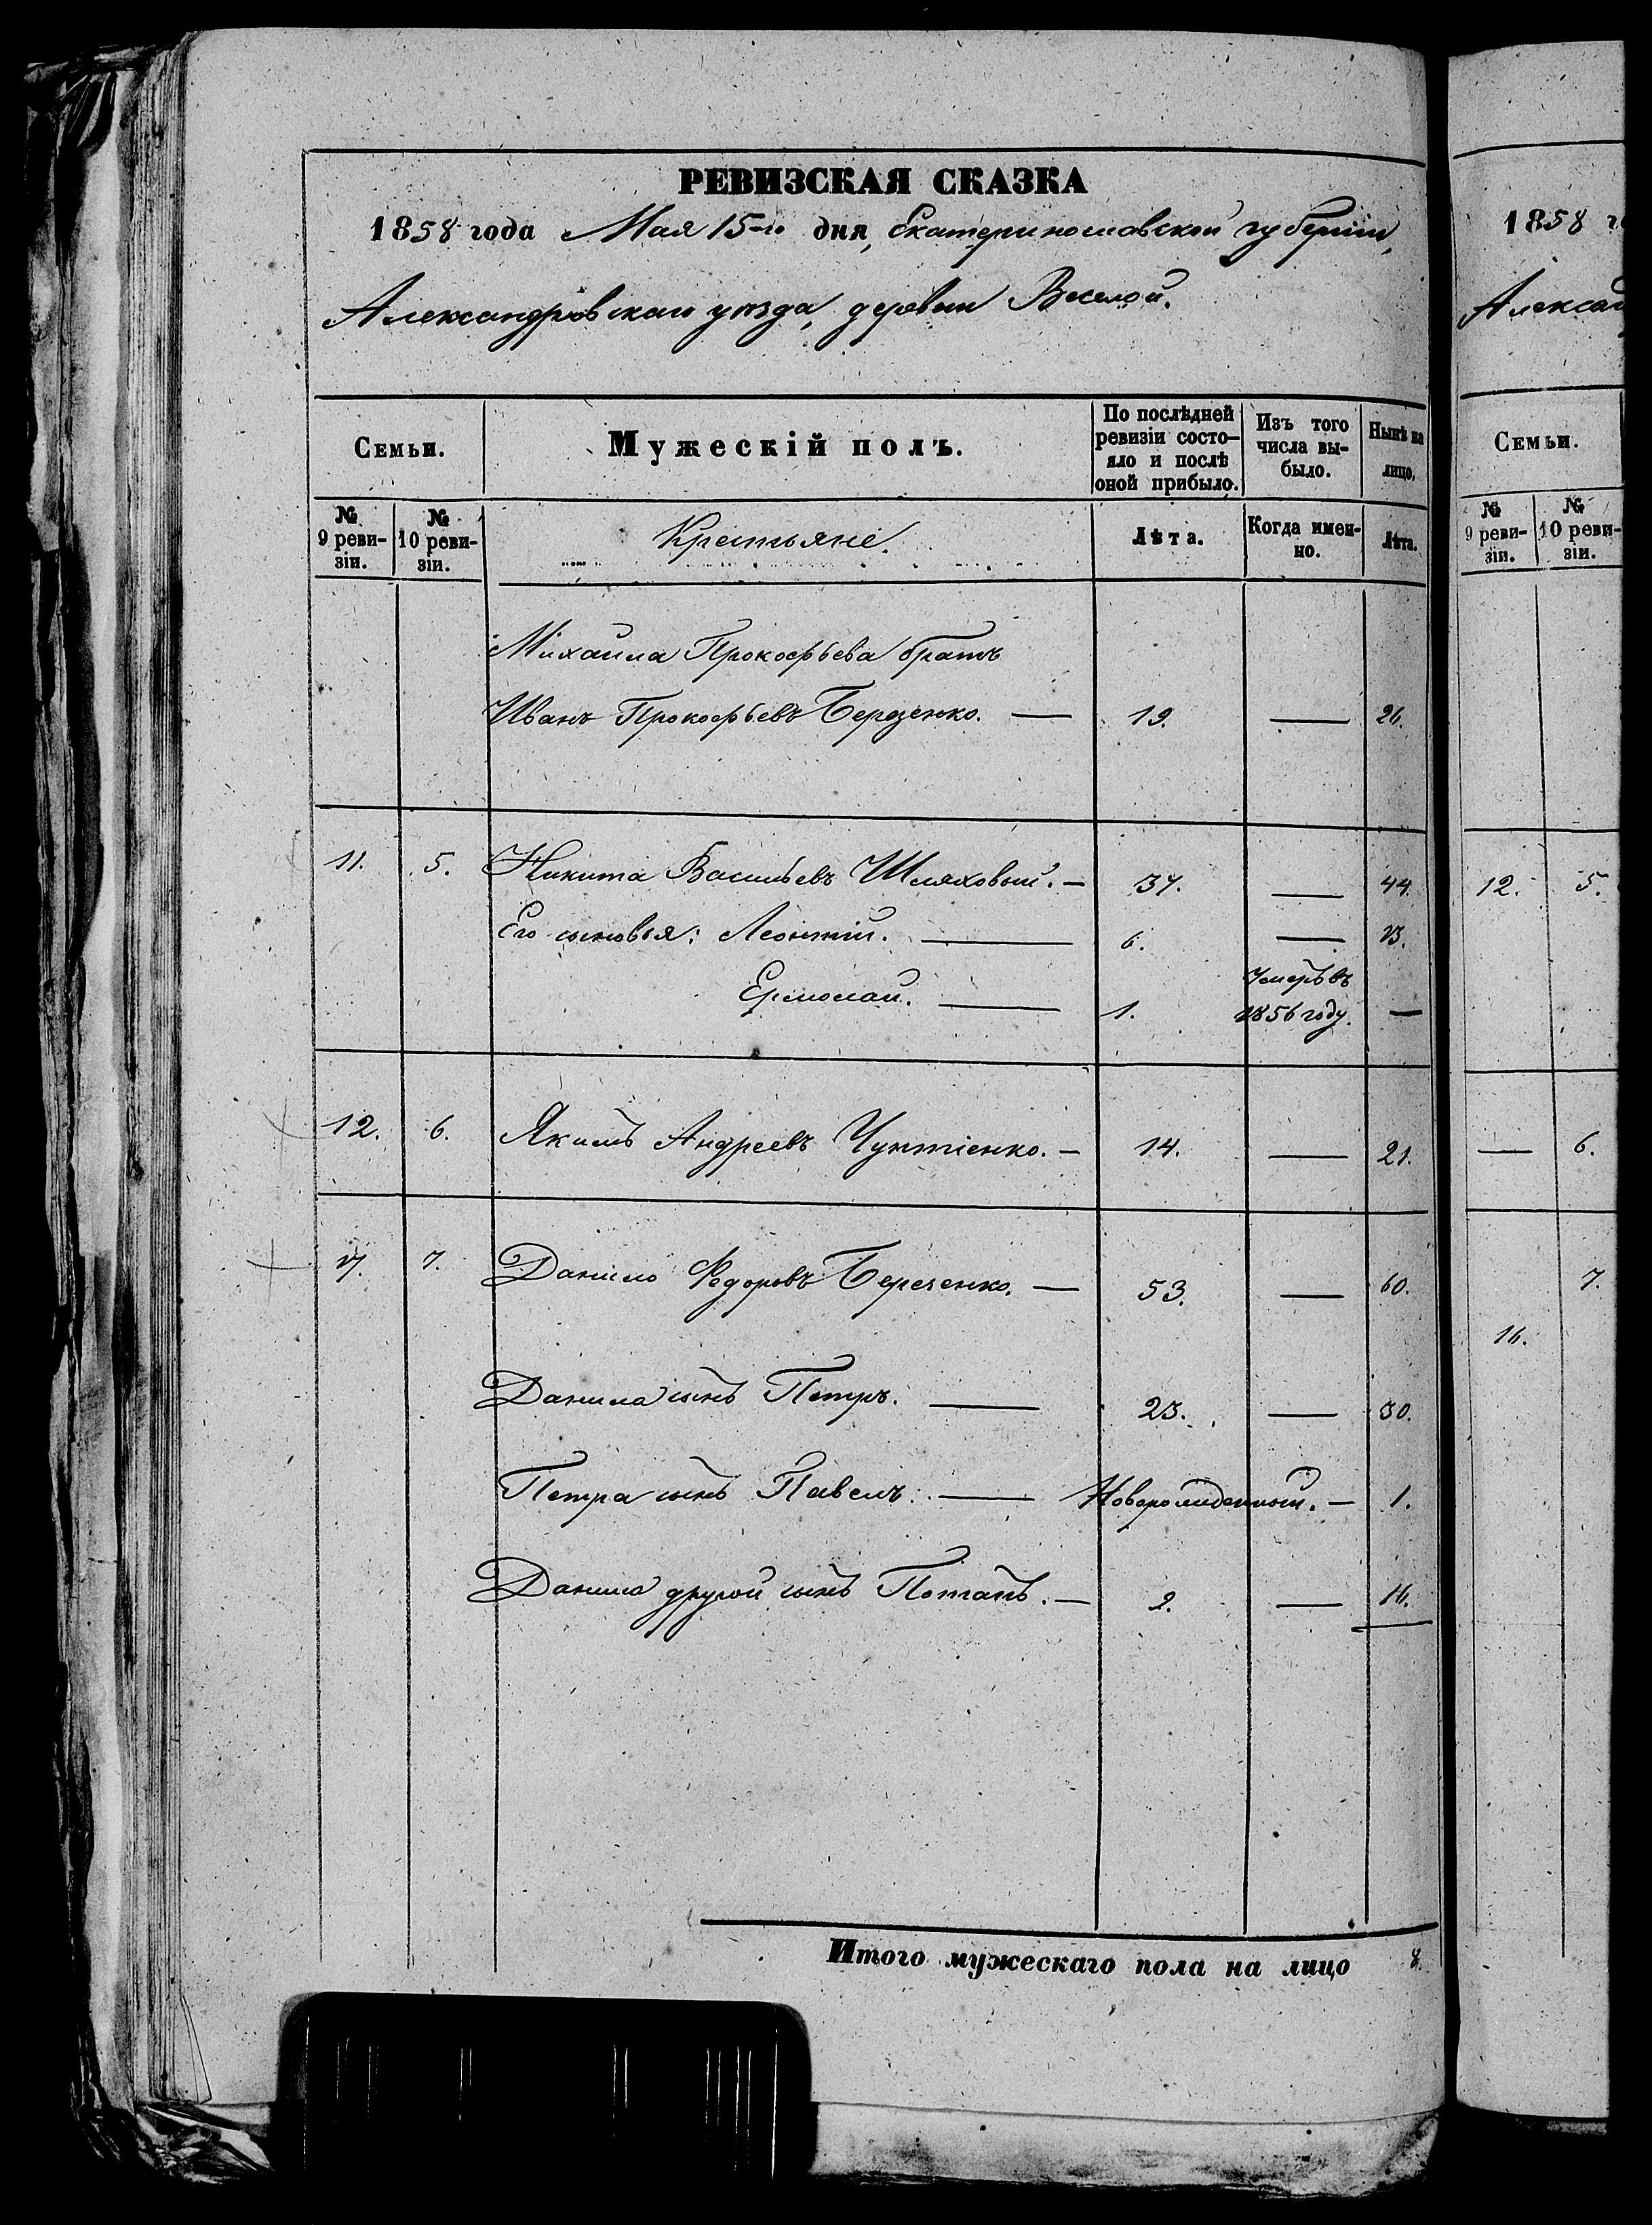 РЕВИЗСКАЯ СКАЗКА
1858 года Мая 15-го дня, Екатеринославской губернии,
Александровскаго уѣзда, деревни Веселой.
Семьи.
Мужескій полъ.
По послѣдней ревизіи состояло и послѣ оной прибыло.
Изъ того числа выбыло.
Нынѣ на лицо.
№ 9 ревизіи.
№ 10 ревизіи.
Крестьяне.
Лѣта.
Когда именно.
Лѣта.
Михаила Прокофьева братъ
Иванъ Прокофьевъ Березенко. — 19. — 26.
11. 5. Никита Васильевъ Шляховый. — 37. — 44.
Его сыновья: Леонтій. — 6. — 13.
Ермолай. — 1. Умеръ въ 1856 году. —
12. 6. Якимъ Андреевъ Чуттіенко. — 14. — 21.
17. 7. Данило Федоровъ Береченко. — 53. — 60.
Данила сынъ Петръ. — 23. — 30.
Петра сынъ Павелъ. — Новорожденный. — 1.
Данила другой сынъ Потапъ. — 9. — 16.
Итого мужескаго пола на лицо 8.
1858 г
Алексан
Семьи.
№ 9 ревизіи.
№ 10 ревизіи.
12. 5.
— 6.
7.
16.